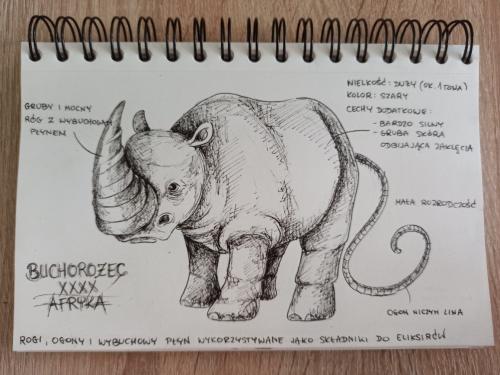 GRUBY I MOCNY
RÓG Z WYBUCHOWYM
PŁYNEM
WIELKOŚĆ: DUŻY (OK. 1 TONA)
KOLOR: SZARY
CECHY DODATKOWE:
- BARDZO SILNY
- GRUBA SKÓRA
ODBIJAJĄCA ZAKLĘCIA
MAŁA ROZRODCZOŚĆ
BUCHOROŻEC
XXXX
AFRYKA
OGON NICZYM LINA
ROGI, OGONY I WYBUCHOWY PŁYN WYKORZYSTYWANE JAKO SKŁADNIKI DO ELIKSIRÓW